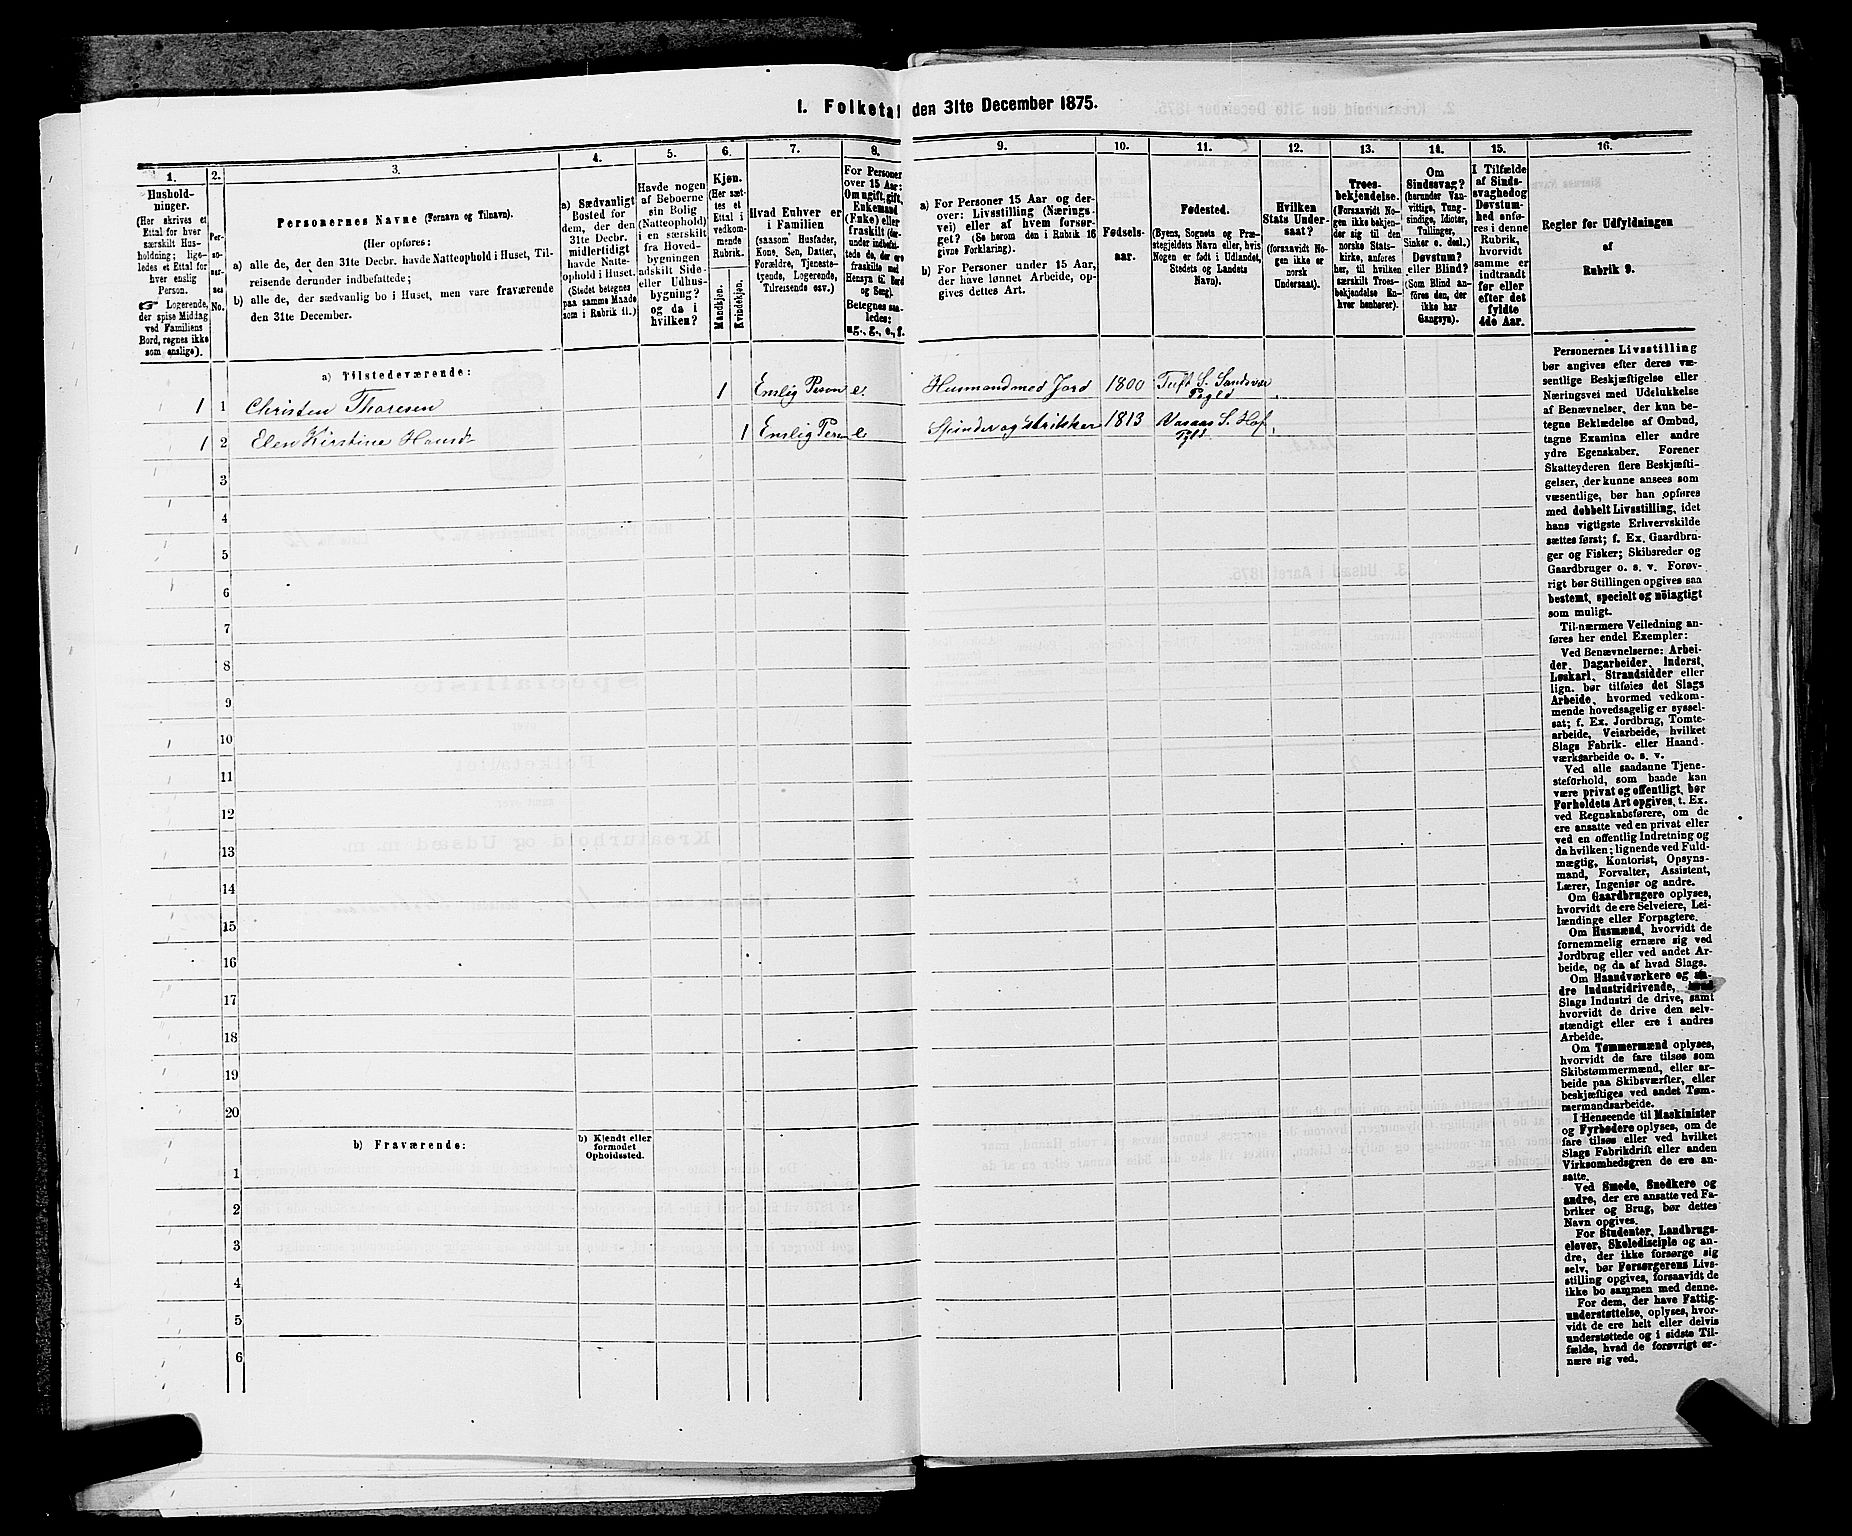 I. Folketal den 31te December 1875.
1. 2. 3. 4. 5. 6. 7. 8. 9. 10. 11. 12. 13. 14. 15. 16.
Hushold-
ninger.
(Her skrives et
Ettal for hver
særskilt Hus-
holdning; lige-
ledes et Ettal for
hver enslig
Person.
☞ Logerende,
der spise Middag
ved Familiens
Bord, regnes ikke
som enslige).
Per-
so-
ner-
nes
No.
Personernes Navne (Fornavn og Tilnavn).
(Her opføres:
a) alle de, der den 31te Decbr. havde Natteophold i Huset, Til-
reisende derunder indbefattede;
b) alle de, der sædvanlig bo i Huset, men vare fraværende
den 31te December.
a) Sædvanligt
Bosted for
dem, der den
31te Decbr.
midlertidigt
havde Natte-
ophold i Huset.
(Stedet betegnes
paa samme Maade
som i Rubrik 11.)
Havde nogen
af Beboerne
sin Bolig
(Natteophold)
i en særskilt
fra Hoved-
bygningen
adskilt Side-
eller Udhus-
bygning?
og da i
hvilken?
Kjøn.
(Her sæt-
tes et
Ettal i
vedkom-
mende
Rubrik.
Mandkjøn.
Kvindekjøn.
Hvad Enhver er
i Familien
(saasom Husfader,
Kone, Søn, Datter,
Forældre, Tjeneste-
tyende, Logerende,
Tilreisende osv.)
For Personer
over 15 Aar:
Om ugift, gift,
Enkemand
(Enke) eller
fraskilt (her-
under indbefat-
tede de, der ere
fraskilte med
Hensyn til Bord
og Seng).
Betegnes saa-
ledes:
ug., g., e., f.
a) For Personer 15 Aar og der-
over: Livsstilling (Nærings-
vei) eller af hvem forsør-
get? (Se herom den i Rubrik 16
givne Forklaring).
b) For Personer under 15 Aar,
der have lønnet Arbeide, op-
gives dettes Art.
Fødsels-
aar.
Fødested.
(Byens, Sognets og Præ-
stegjeldets Navn eller, hvis
Nogen er født i Udlandet,
Stedets og Landets
Navn).
Hvilken
Stats Under-
saat?
(forsaavidt No-
gen ikke er
norsk
Undersaat).
Troes-
bekjendelse.
(Forsaavidt No-
gen ikke bekjen-
der sig til den
norske Stats-
kirke, anføres
her, til hvilken
særskilt Troes-
bekjendelse En-
hver henhører).
Om
Sindssvag?
(herunder Van-
vittige, Tung-
sindige, Idioter,
Tullinger,
Sinker o. desl.)
Døvstum?
eller Blind?
(Som Blind an-
føres den, der
ikke har
Gangsyn).
I Tilfælde
af Sinds-
svaghed og
Døvstum-
hed anfø-
res i denne
Rubrik,
hvorvidt
samme er
indtraadt
før eller
efter det
fyldte
4de Aar.
Regler for Udfyldningen
af
Rubrik 9.
a) Tilstedeværende:
1 1 Christen Thoresen 1 Enslig Person e. Husmand med Jord 1800 Tuft S. Sandsvær
Pgld
1 2 Elen Kirstine Hansdr 1 Enslig Person e Spinder og strikker 1813 Vasaas S. Hof
Pgld.
3
4
5
6
7
8
9
10
11
12
13
14
15
16
17
18
19
20
b) Fraværende:
b) Kjendt eller
formodet
Opholdssted.
1
2
3
4
5
6
Personernes Livsstilling
bør angives efter deres væ-
sentlige Beskjæftigelse eller
Næringsvei med Udelukkelse
af Benævnelser, der kun be-
tegne Beklædelse af Ombud,
tagne Examina eller andre
ydre Egenskaber. Forener
Skatteyderen flere Beskjæfti-
gelser, der kunne ansees som
væsentlige, bør han opføres
med dobbelt Livsstilling, idet
hans vigtigste Erhvervskilde
sættes først; f. Ex. Gaardbru-
ger og Fisker; Skibsreder og
Gaardbruger o. s. v. Forøv-
rigt bør Stillingen opgives saa
bestemt, specielt og nøiagtigt
som muligt.
Til nærmere Veiledning an-
føres her endel Exempler:
Ved Benævnelserne: Arbei-
der, Dagarbeider, Inderst,
Løskarl, Strandsidder eller
lign. bør tilføies det Slags
Arbeide, hvormed vedkom-
mende hovedsagelig er syssel-
sat; f. Ex. Jordbrug, Tomte-
arbeide, Veiarbeide, hvilket
Slags Fabrik- eller Haand-
værksarbeide o. s. v.
Ved alle saadanne Tjene-
steforhold, som baade kan
være privat og offentligt, bør
Forholdets Art opgives, t. Ex.
ved Regnskabsførere, om de
ere ansatte ved en privat eller
ved en offentlig Indretning og
da hvilken; lignende ved Fuld-
mægtig, Kontorist, Opsyns-
mand, Forvalter, Assistent,
Lærer, Ingeniør og andre.
Om Gaardbrugere oplyses,
hvorvidt de ere Selveiere, Lei-
lændinge eller Forpagtere.
Om Husmænd, hvorvidt de
fornemmelig ernære sig ved
Jordbrug eller ved andet Ar-
beide, og da af hvad Slags.
Om Haandværkere og an-
dre Industridrivende, hvad
Slags Industri de drive, samt
hvorvidt de drive den selv-
stændigt eller ere i andres
Arbeide.
Om Tømmermænd oplyses,
hvorvidt de fare tilsøs som
Skibstømmermænd, eller ar-
beide paa Skibsværfter, eller
beskjæftiges ved andet Tøm-
mermandsarbeide.
I Henseende til Maskinister
og Fyrbødere oplyses, om de
fare tilsøs eller ved hvilket
Slags Fabrikdrift eller anden
Virksomhedsgren de ere an-
satte.
Ved Smede, Snedkere og
andre, der ere ansatte ved Fa-
briker og Brug, bør dettes
Navn opgives.
For Studenter, Landbrugs-
elever, Skoledisciple og an-
dre, der ikke forsørge sig
selv, bør Forsørgerens Livs-
stilling opgives, forsaavidt de
ikke bo sammen med denne.
For dem, der have Fattig-
understøttelse, oplyses, hvor-
vidt de ere helt eller delvis
understøttede og i sidste Til-
fælde, hvad de forøvrigt er-
nære sig ved.